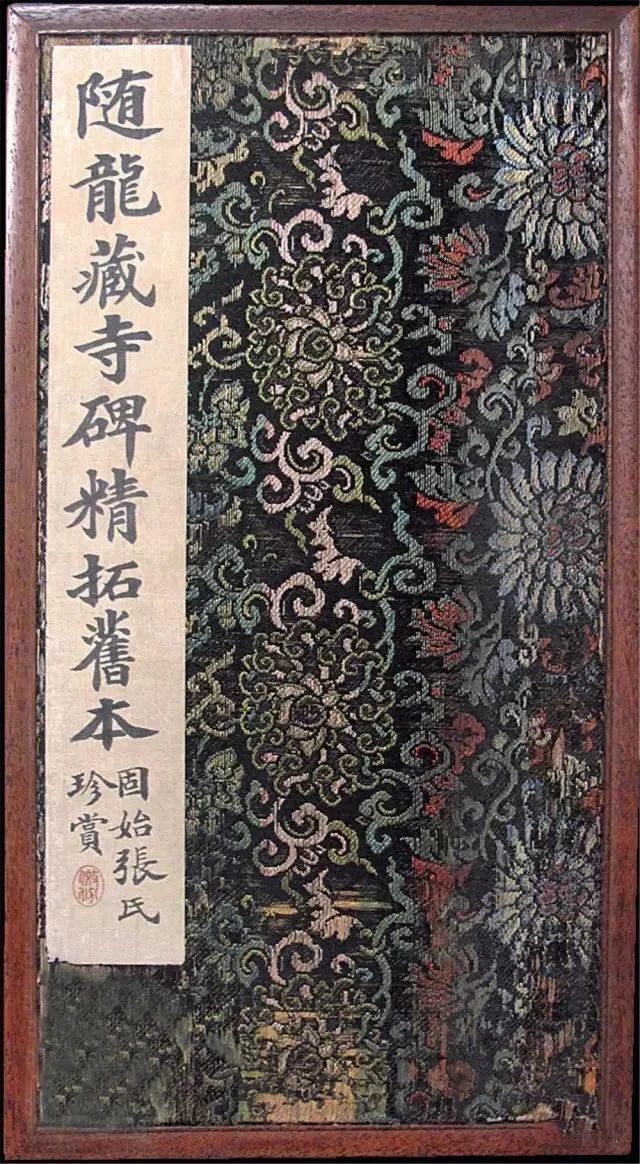 随龍藏寺碑精拓舊本
固始張氏
珍賞